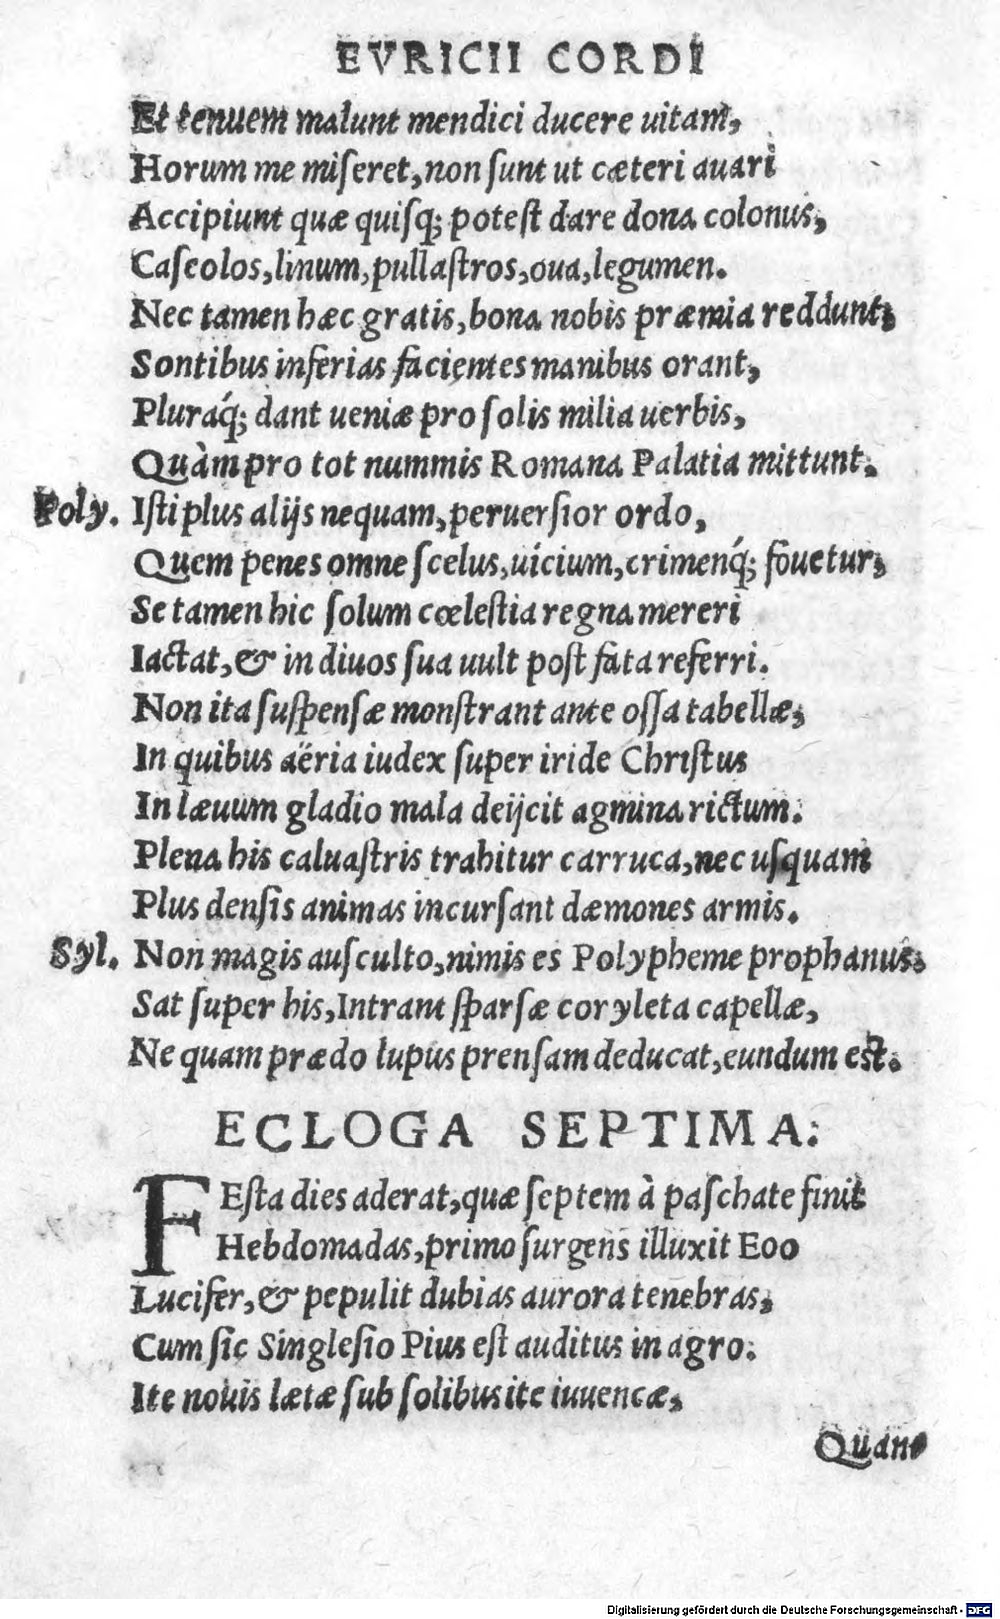 EVRICII CORDI
Et tenuem malunt mendici ducere uitam,
Horum me miſeret, non ſunt ut cæteri auari
Accipiunt quæ quiſq; poteſt dare dona colonus,
Caſeolos, linum, pullaſtros, oua, legumen.
Nec tamen hæc gratis, bona nobis præmia reddunt,
Sontibus inferias facientes manibus orant,
Pluraq́; dant ueniæ pro ſolis milia uerbis,
Quàm pro tot nummis Romana Palatia mittunt.
Poly. Iſti plus alijs nequam, peruerſior ordo,
Quem penes omne ſcelus, uicium, crimenq́; fouetur,
Se tamen hic ſolum cœleſtia regna mereri
Iactat, & in diuos ſua uult poſt fata referri.
Non ita ſuſpenſæ monſtrant ante oſſa tabellæ,
In quibus aëria iudex ſuper iride Chriſtus
In læuum gladio mala deijcit agmina rictum.
Plena his caluaſtris trahitur carruca, nec uſquam
Plus denſis animas incurſant dæmones armis.
Syl. Non magis auſculto, nimis es Polypheme prophanus.
Sat ſuper his, Intrant ſparſæ coryleta capellæ,
Ne quam prædo lupus prenſam deducat, eundum eſt.
ECLOGA SEPTIMA.
FEſta dies aderat, quæ ſeptem à paſchate finit
Hebdomadas, primo ſurgens illuxit Eoo
Lucifer, & pepulit dubias aurora tenebras,
Cum ſic Singleſio Pius eſt auditus in agro.
Ite nouis lætæ ſub ſolibus ite iuuencæ,
Quan⸗
Digitalisierung gefördert durch die Deutsche Forschungsgemeinschaft - DFG